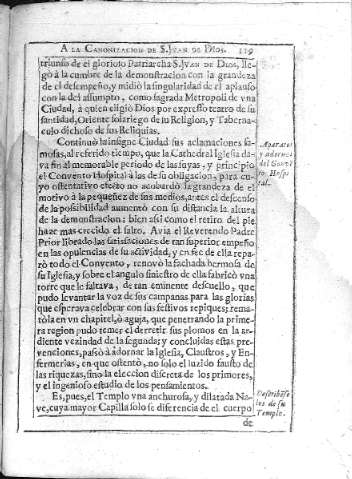 A LA CANONIZACION DE S. JVAN DE DIOS. 119
triunfo de el glorioso Patriarcha S. JVAN DE DIOS, lle-
gò à la cumbre de la demonstracion con la grandeza
de el desempeño, y midiò la singularidad de el aplauso
con la del assumpto, como sagrada Metropoli de vna
Ciudad, à quien eligiò Dios por expresso teatro de su
santidad, Oriente solariego de su Religion, y Taberna-
culo dichoso de sus Reliquias.
Continuò la insigne Ciudad sus aclamaciones fa-
mosas, al referido tiempo, que la Cathedral Iglesia dava
fin al memorable periodo de las suyas, y principio
el Convento Hospital à las de su obligacion, para cu-
yo ostentativo efecto no acobardò la grandeza de el
motivo à la pequeñez de sus medios, antes el descenso
de la possibilidad aumentò con su distancia la altura
de la demonstracion: bien assi como el retiro del pie
haze mas crecido el salto. Avia el Reverendo Padre
Prior librado las satisfaciones de tan superior empeño
en las opulencias de su actividad, y en fee de ella repa-
rò todo el Convento, renovò la fachada hermosa de
su Iglesia, y sobre el angulo siniestro de ella fabricò vna
torre que le faltava, de tan eminente descuello, que
pudo levantar la voz de sus campanas para las glorias
que esperava celebrar con sus festivos repiques; rema-
tòla en vn chapitel, ò aguja, que penetrando la prime-
ra region pudo temer el derretir sus plomos en la ar-
diente vezindad de la segunda; y concluidas estas pre-
venciones, passò à adornar la Iglesia, Claustros, y En-
fermerias, en que ostentò, no solo el luzido fausto de
las riquezas, sino la eleccion discreta de los primores,
y el ingenioso estudio de los pensamientos.
Es, pues, el Templo vna anchurosa, y dilatada Na-
ve, cuya mayor Capilla solo se diferencia de el cuerpo
de
Aparatos
y adornos
del Conve
to, Hospi
tal.
Describese
los de su
Templo.